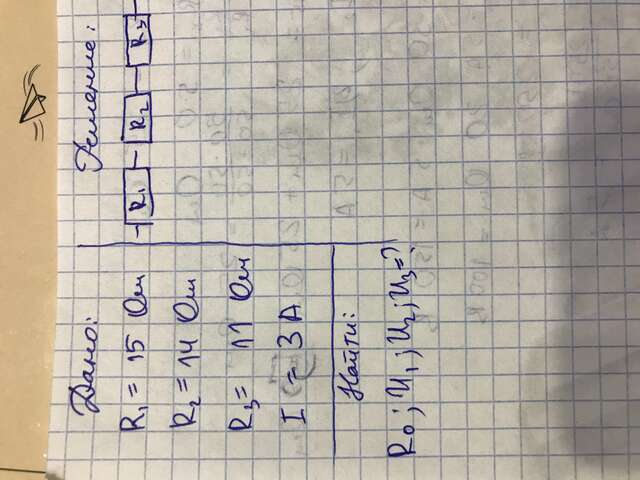 Дано:
R₁ = 15 Ом
R₂ = 14 Ом
R₃ = 11 Ом
I = 3 А
Найти:
R₀; U₁; U₂; U₃=?
Решение:
R₁ R₂ R₃